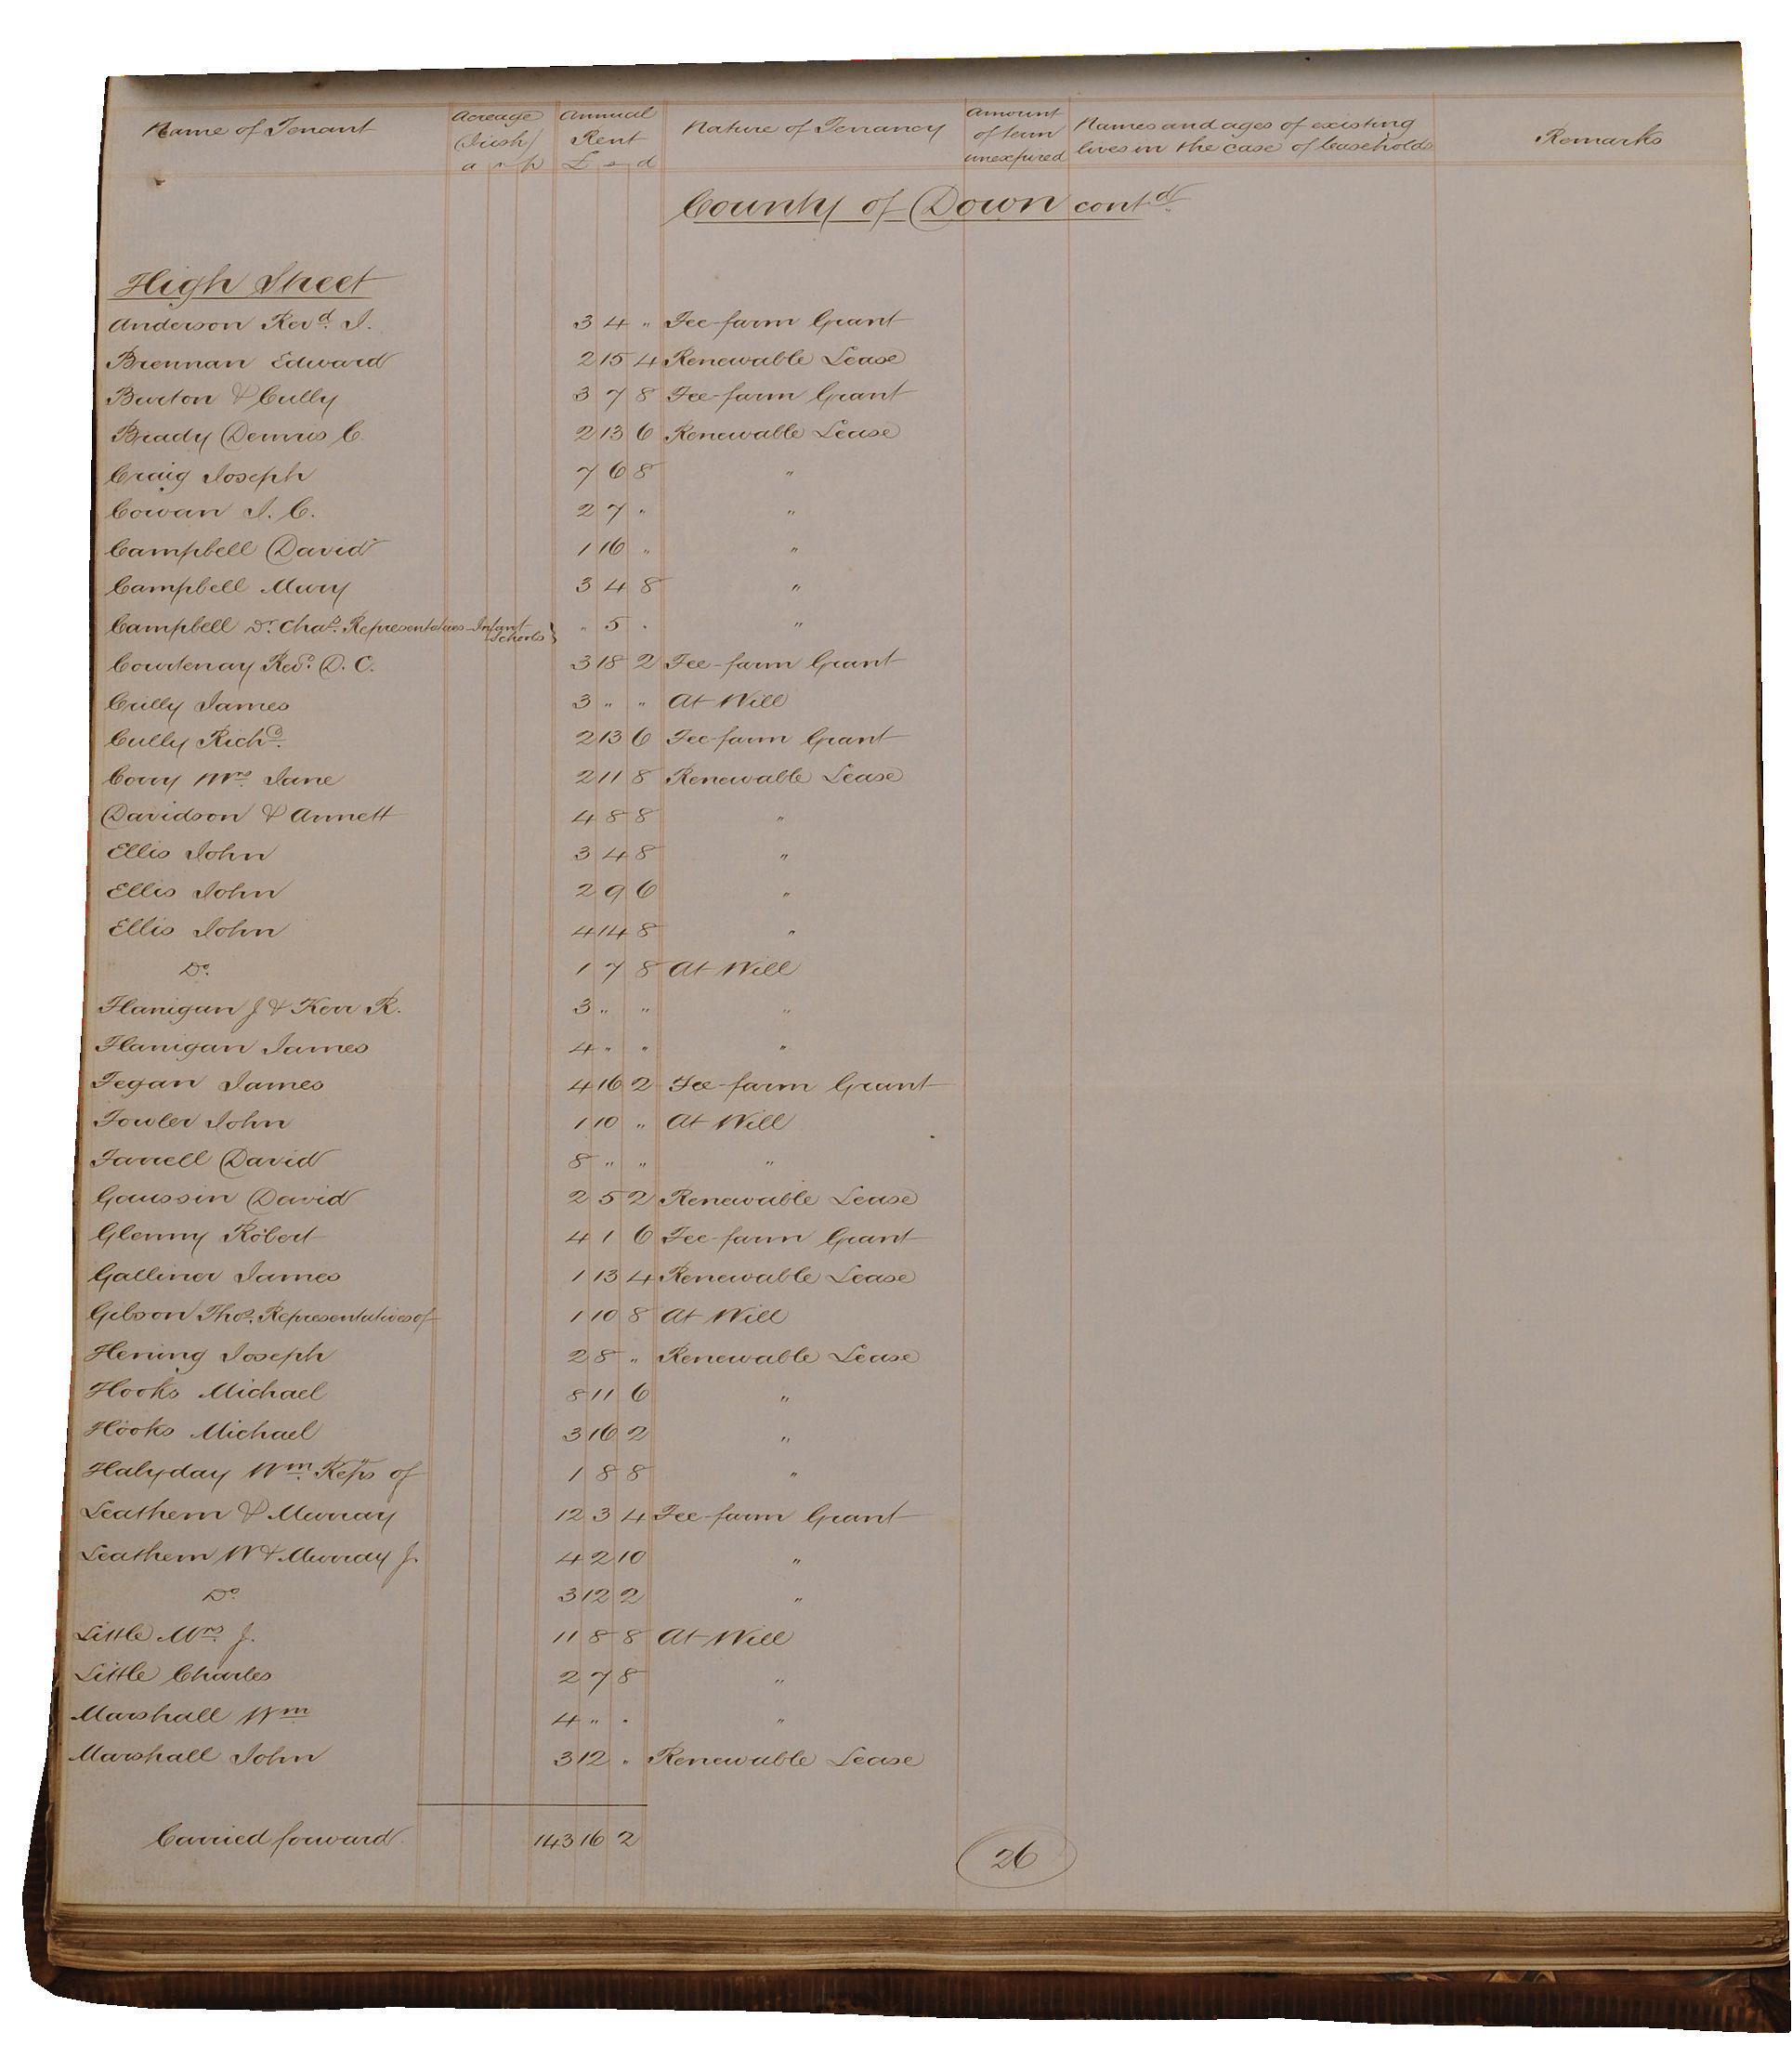 Name of Tenant | Acreage (Irish) a r p | Annual Rent £ s d | Nature of Tenancy | Amount of term unexpired | Names and ages of existing lives in the case of leaseholds | Remarks
County of Down contd.
High Street
Anderson Revd. J. 3 4 " Fee-farm Grant
Brennan Edward 2 15 4 Renewable Lease
Burton & Cully 3 7 8 Fee-farm Grant
Brady Dennis C. 2 13 6 Renewable Lease
Craig Joseph 7 6 8 "
Cowan J. C. 2 7 " "
Campbell David 1 16 " "
Campbell Mary 3 4 8 "
Campbell Dr. Chas. Representatives - Infant Schools } " 5 " "
Courtenay Revd. D. C. 3 18 2 Fee-farm Grant
Cully James 3 " " At Will
Cully Richd. 2 13 6 Fee-farm Grant
Corry Mrs. Jane 2 11 8 Renewable Lease
Davidson & Annett 4 8 8 "
Ellis John 3 4 8 "
Ellis John 2 9 6 "
Ellis John 4 14 8 "
Do. 1 7 8 At Will
Flanigan J & Kerr R. 3 " " "
Flanigan James 4 " " "
Fegan James 4 16 2 Fee-farm Grant
Fowler John 1 10 " At Will
Farrell David 8 " " "
Gaussin David 2 5 2 Renewable Lease
Glenny Robert 4 1 6 Fee-farm Grant
Galliner James 1 13 4 Renewable Lease
Gibson Thos. Representatives of 1 10 8 At Will
Herring Joseph 2 8 " Renewable Lease
Hooks Michael 8 11 6 "
Hooks Michael 3 16 2 "
Halyday Wm. Reps of 1 8 8 "
Leathem & Murray 12 3 4 Fee-farm Grant
Leathem W & Murray J. 4 2 10 "
Do. 3 12 2 "
Little Mrs. J. 11 8 8 At Will
Little Charles 2 7 8 "
Marshall Wm 4 " " "
Marshall John 3 12 " Renewable Lease
Carried forward 143 16 2
26